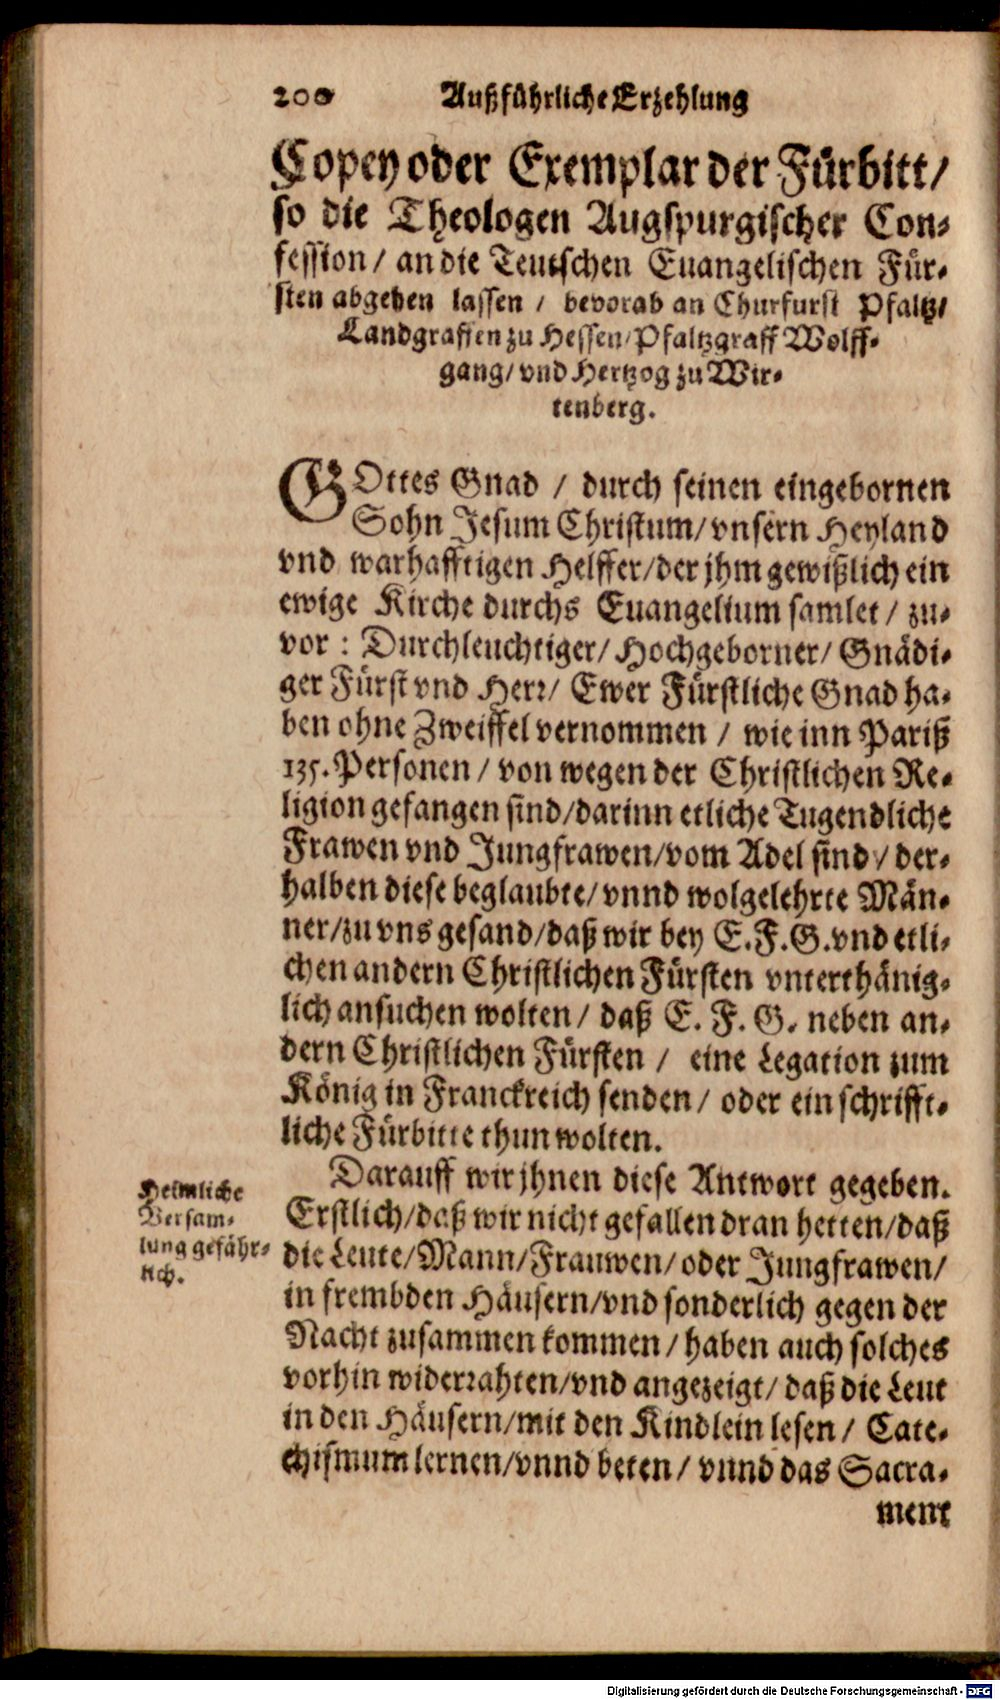 200 Außführliche Erzehlung
Copey oder Exemplar der Fürbitt/
so die Theologen Augspurgischer Con-
fession/ an die Teutschen Euangelischen Für-
sten abgehen lassen / bevorab an Churfurst Pfaltz/
Landgraffen zu Hessen/Pfaltzgraff Wolff-
gang/vnd Hertzog zu Wir-
tenberg.
GOttes Gnad / durch seinen eingebornen
Sohn Jesum Christum/vnsern Heyland
vnd warhafftigen Helffer/der jhm gewißlich ein
ewige Kirche durchs Euangelium samlet / zu-
vor : Durchleuchtiger/ Hochgeborner/ Gnädi-
ger Fürst vnd Herr/ Ewer Fürstliche Gnad ha-
ben ohne Zweiffel vernommen / wie inn Pariß
135. Personen / von wegen der Christlichen Re-
ligion gefangen sind/darinn etliche Tugendliche
Frawen vnd Jungfrawen/vom Adel sind / der-
halben diese beglaubte/ vnnd wolgelehrte Män-
ner/zu vns gesand/daß wir bey E.F.G.vnd etli-
chen andern Christlichen Fürsten vnterthänig-
lich ansuchen wolten/ daß E. F. G. neben an-
dern Christlichen Fürsten / eine Legation zum
König in Franckreich senden/ oder ein schrifft-
liche Fürbitte thun wolten.
Darauff wir jhnen diese Antwort gegeben.
Erstlich/daß wir nicht gefallen dran hetten/daß
die Leute/Mann/Frauwen/oder Jungfrawen/
in frembden Häusern/vnd sonderlich gegen der
Nacht zusammen kommen/haben auch solches
vorhin widerrahten/vnd angezeigt/ daß die Leut
in den Häusern/mit den Kindlein lesen / Cate-
chismum lernen/vnnd beten/ vnnd das Sacra-
ment
Heimliche
Versam-
lung gefähr-
lich.
Digitalisierung gefördert durch die Deutsche Forschungsgemeinschaft - DFG